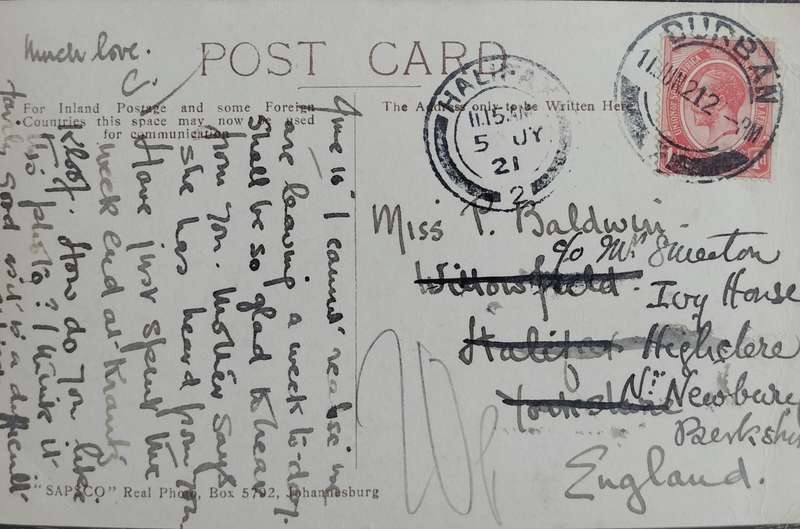 Much love.
C.
POST CARD
For Inland Postage and some Foreign
Countries this space may now be used
for communication.
The Address only to be Written Here
June 10 I cannot realise we
are leaving a week to-day.
Shall be so glad to hear
from you. Mother says
she has heard from you.
Have just spent the
week end at Krantz
Kloof. How do you like
this photo? I think it
fairly good as it is a difficult
HALIFAX
11.15 AM
5 JY
21
2
DURBAN
11 JUN 21 2 - PM
Miss P. Baldwin.
c/o Mr. Smeeton
Willowfield.
Ivy House
Halifax
Highclere
Yorkshire
Nr. Newbury
Berkshire
England.
"SAPSCO" Real Photo, Box 5792, Johannesburg